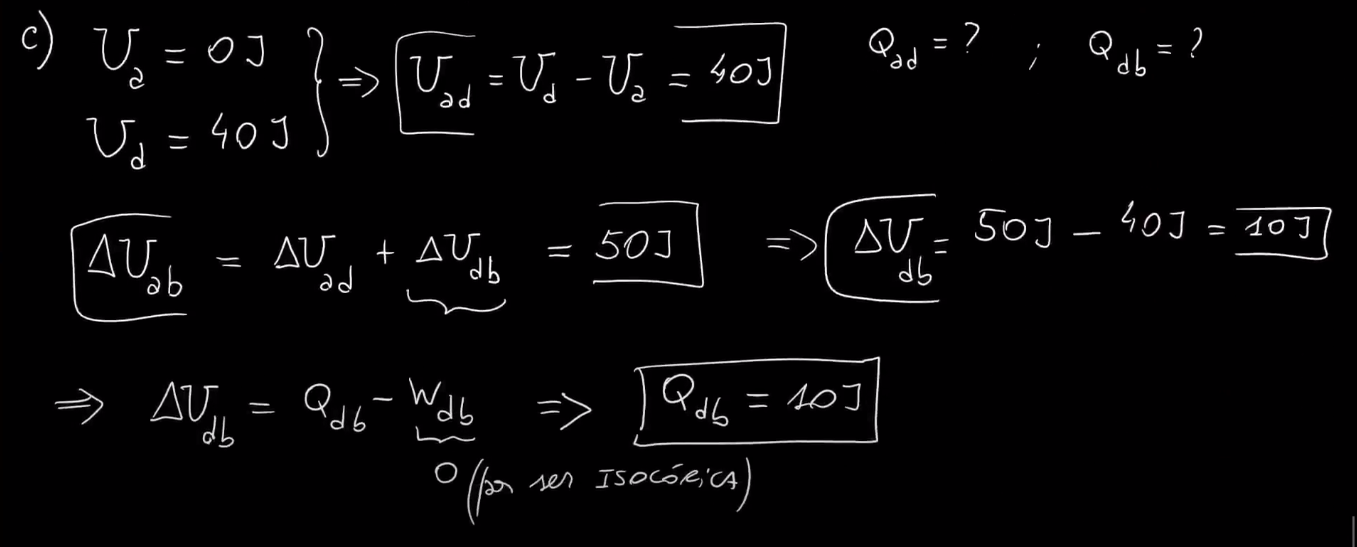 c) U_a = 0J } ⇒ U_ad = U_d - U_a = 40J Q_ad = ? ; Q_db = ?
U_d = 40J
ΔU_ab = ΔU_ad + ΔU_db = 50J ⇒ ΔU_db = 50J - 40J = 10J
⇒ ΔU_db = Q_db - W_db ⇒ Q_db = 10J
0 (por ser ISOCÓRICA)